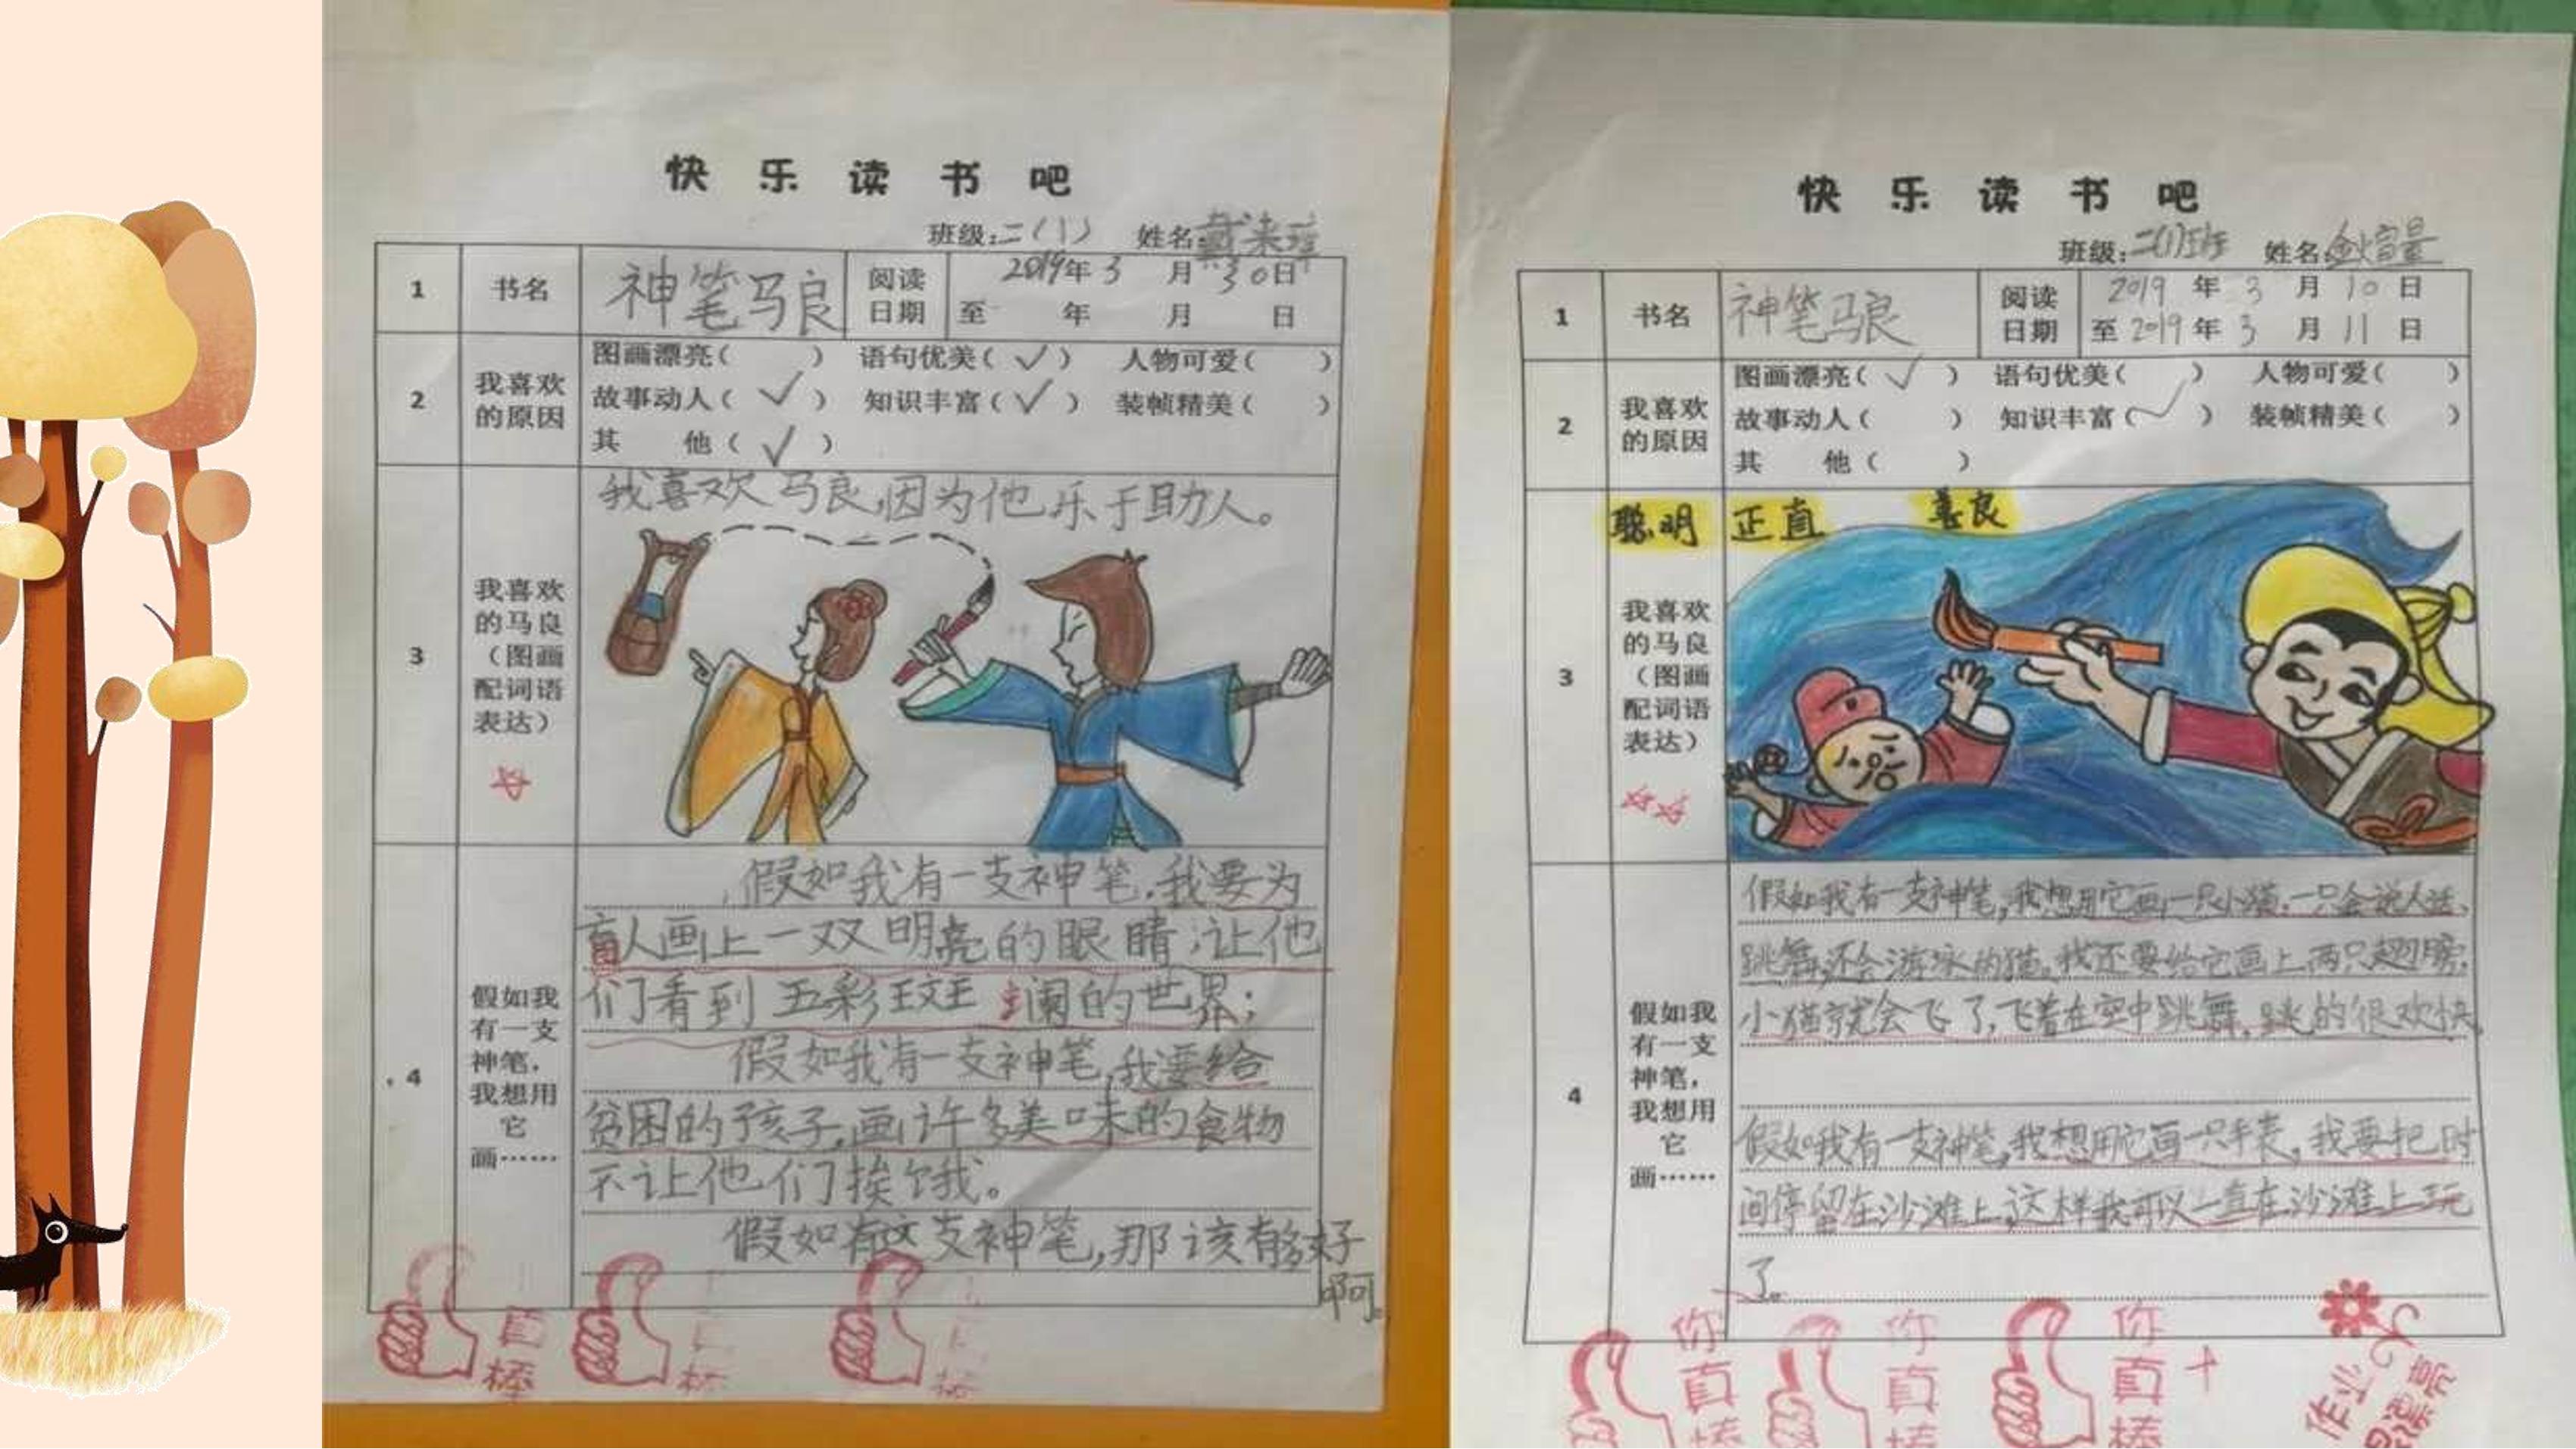 快乐读书吧
班级：二（1） 姓名：
1 书名 神笔马良 阅读日期 2019年3月30日
至 年 月 日
2 我喜欢的原因
图画漂亮（ ） 语句优美（√） 人物可爱（ ）
故事动人（√） 知识丰富（√） 装帧精美（ ）
其 他（√）
3 我喜欢的马良（图画配词语表达）
我喜欢马良，因为他乐于助人。
4 假如我有一支神笔，我想用它画……
假如我有一支神笔，我要为
盲人画上一双明亮的眼睛，让他
们看到五彩斑斓的世界；
假如我有一支神笔，我要给
贫困的孩子，画许多美味的食物
不让他们挨饿。
假如有这支神笔，那该有多好
啊。
真棒
快乐读书吧
班级：二（1）班 姓名：
1 书名 神笔马良 阅读日期 2019年3月10日
至2019年3月11日
2 我喜欢的原因
图画漂亮（√） 语句优美（ ） 人物可爱（ ）
故事动人（ ） 知识丰富（√） 装帧精美（ ）
其 他（ ）
聪明 正直 善良
3 我喜欢的马良（图画配词语表达）
4 假如我有一支神笔，我想用它画……
假如我有一支神笔，我想用它画一只小猫，一只会说人话、
跳舞，还会游泳的猫。我还要给它画上两只翅膀，
小猫就会飞了，飞着在空中跳舞，跳的很欢快。
假如我有一支神笔，我想用它画一只手表，我要把时
间停留在沙滩上，这样我可以一直在沙滩上玩
了。
你真棒
你真棒
你真棒
作业 漂亮